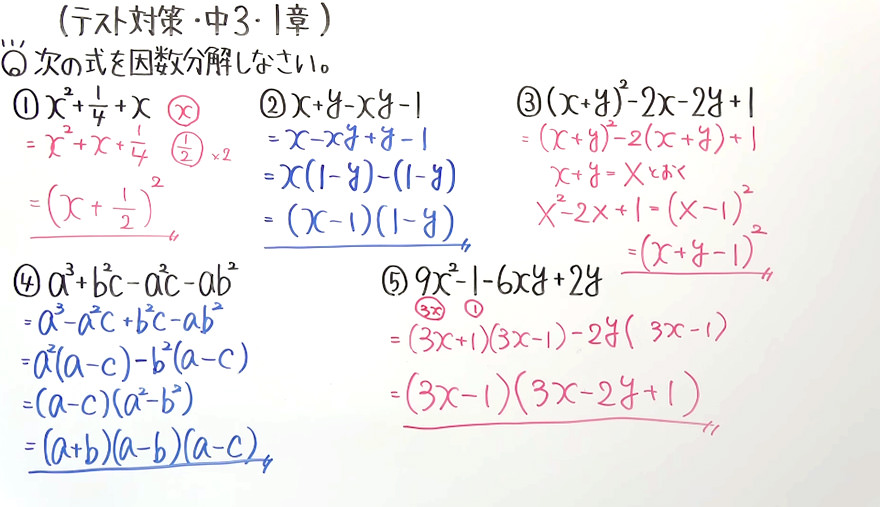 (テスト対策・中3・1章)
次の式を因数分解しなさい。
① x²+1/4+x ⓧ
= x²+x+1/4 (1/2) ×2
=(x+1/2)²
② x+y-xy-1
=x-xy+y-1
=x(1-y)-(1-y)
=(x-1)(1-y)
③ (x+y)²-2x-2y+1
=(x+y)²-2(x+y)+1
x+y=Xとおく
X²-2X+1=(X-1)²
=(x+y-1)²
④ a³+b²c-a²c-ab²
=a³-a²c+b²c-ab²
=a²(a-c)-b²(a-c)
=(a-c)(a²-b²)
=(a+b)(a-b)(a-c)
⑤ 9x²-1-6xy+2y
3x 1
=(3x+1)(3x-1)-2y(3x-1)
=(3x-1)(3x-2y+1)